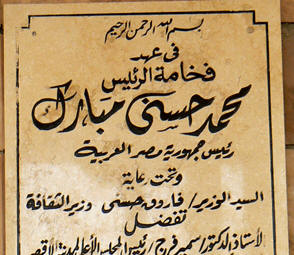 بسم الله الرحمن الرحيم
فى عهد
فخامة الرئيس
محمد حسنى مبارك
رئيس جمهورية مصر العربية
وتحت رعاية
السيد الوزير/ فاروق حسنى وزير الثقافة
تفضل
لأستاذ الدكتور/ سمير فرج/ رئيس المجلس الأعلى لمدينة الأقصر